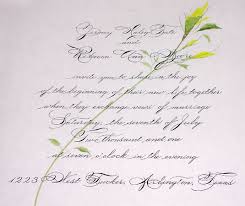 Jeremy Haley Bate
and
Rebecca Ann Moore
invite you to share in the joy
of the beginning of their new life together
when they exchange vows of marriage
Saturday, the seventh of July
Two thousand, and one
at seven o'clock in the evening
1223 West Tucker, Arlington, Texas